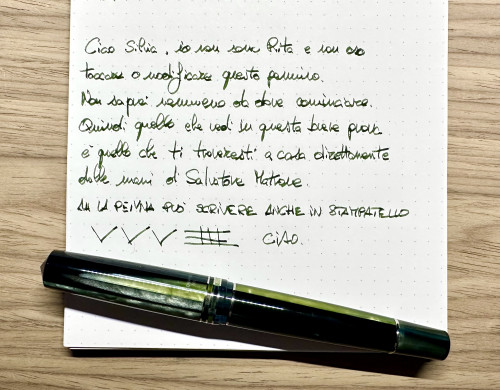 Ciao Silvia, io non sono Rita e non oso
toccare o modificare questo pennino.
Non saprei nemmeno da dove cominciare.
Quindi quello che vedi su questa breve prova
è quello che ti troveresti a casa direttamente
dalle mani di Salvatore Matrone.
MA LA PENNA PUÒ SCRIVERE ANCHE IN STAMPATELLO
CIAO.